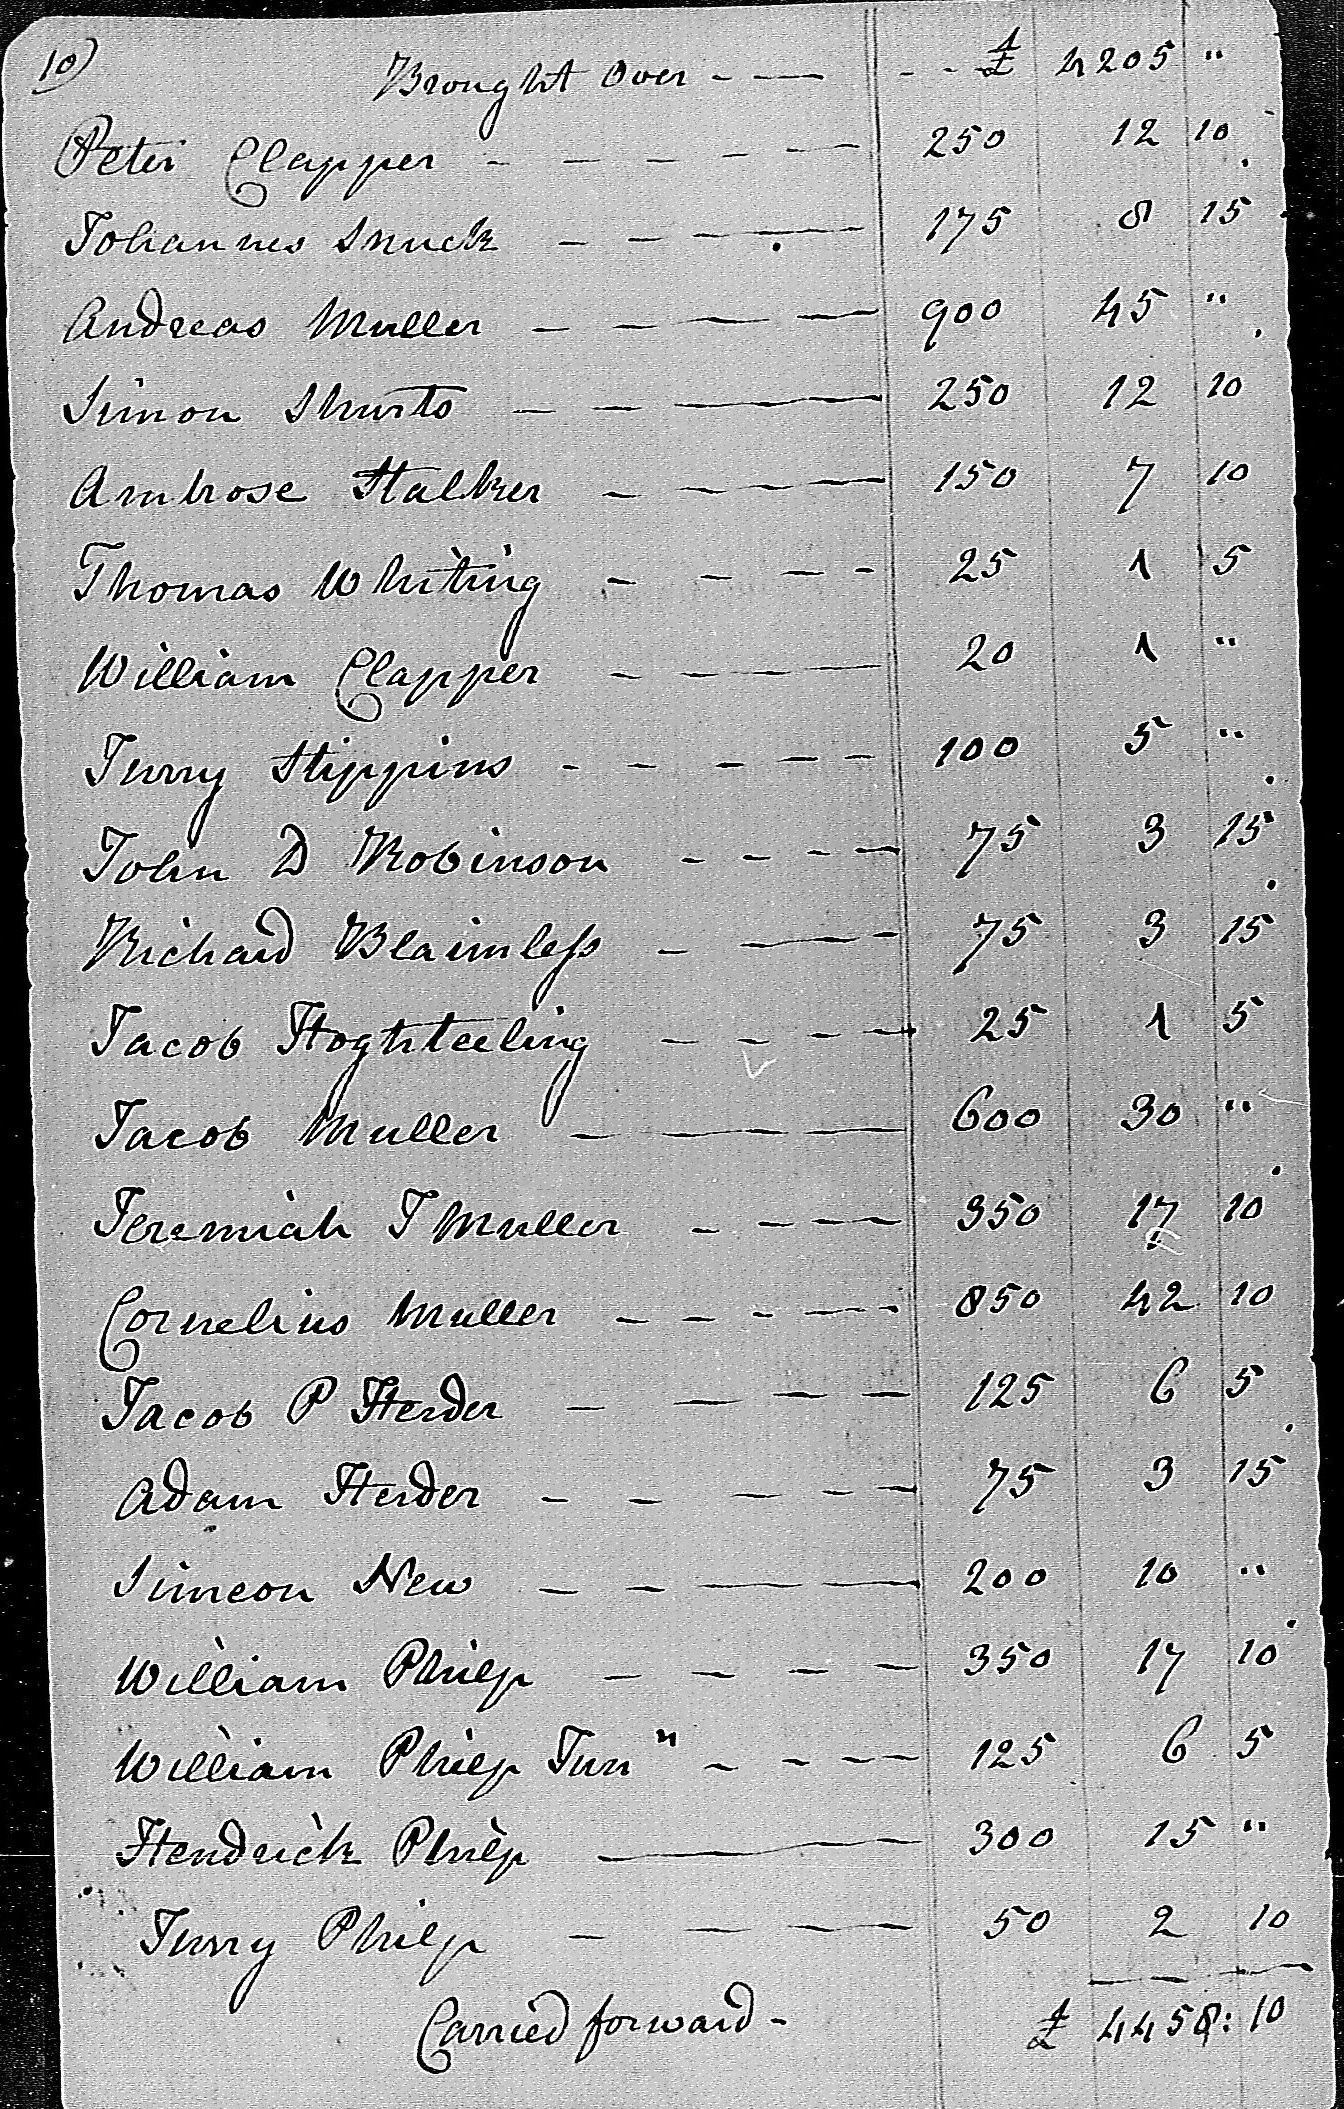 10)
Brought Over - - - - - £ 4205 "
Peter Clapper - - - - - 250 12 10
Johannes Snuck - - - - 175 8 15
Andreas Muller - - - - 900 45 "
Simon Shurts - - - 250 12 10
Ambrose Stalker - - - - 150 7 10
Thomas Whiting - - - - 25 1 5
William Clapper - - - 20 1 "
Jurry Hippins - - - - - 100 5 "
John D Robinson - - - - 75 3 15
Richard Blaimless - - - 75 3 15
Jacob Hoghteeling - - - - 25 1 5
Jacob Muller - - - 600 30 "
Jeremiah J Muller - - - - 350 17 10
Cornelius Muller - - - - - 850 42 10
Jacob P Herder - - - - 125 6 5
Adam Herder - - - - - 75 3 15
Simeon New - - - 200 10 "
William Philip - - - - 350 17 10
William Philip Junr - - - - 125 6 5
Hendrick Philip - 300 15 "
Jurry Philip - - - - 50 2 10
Carried forward - £ 4458: 10